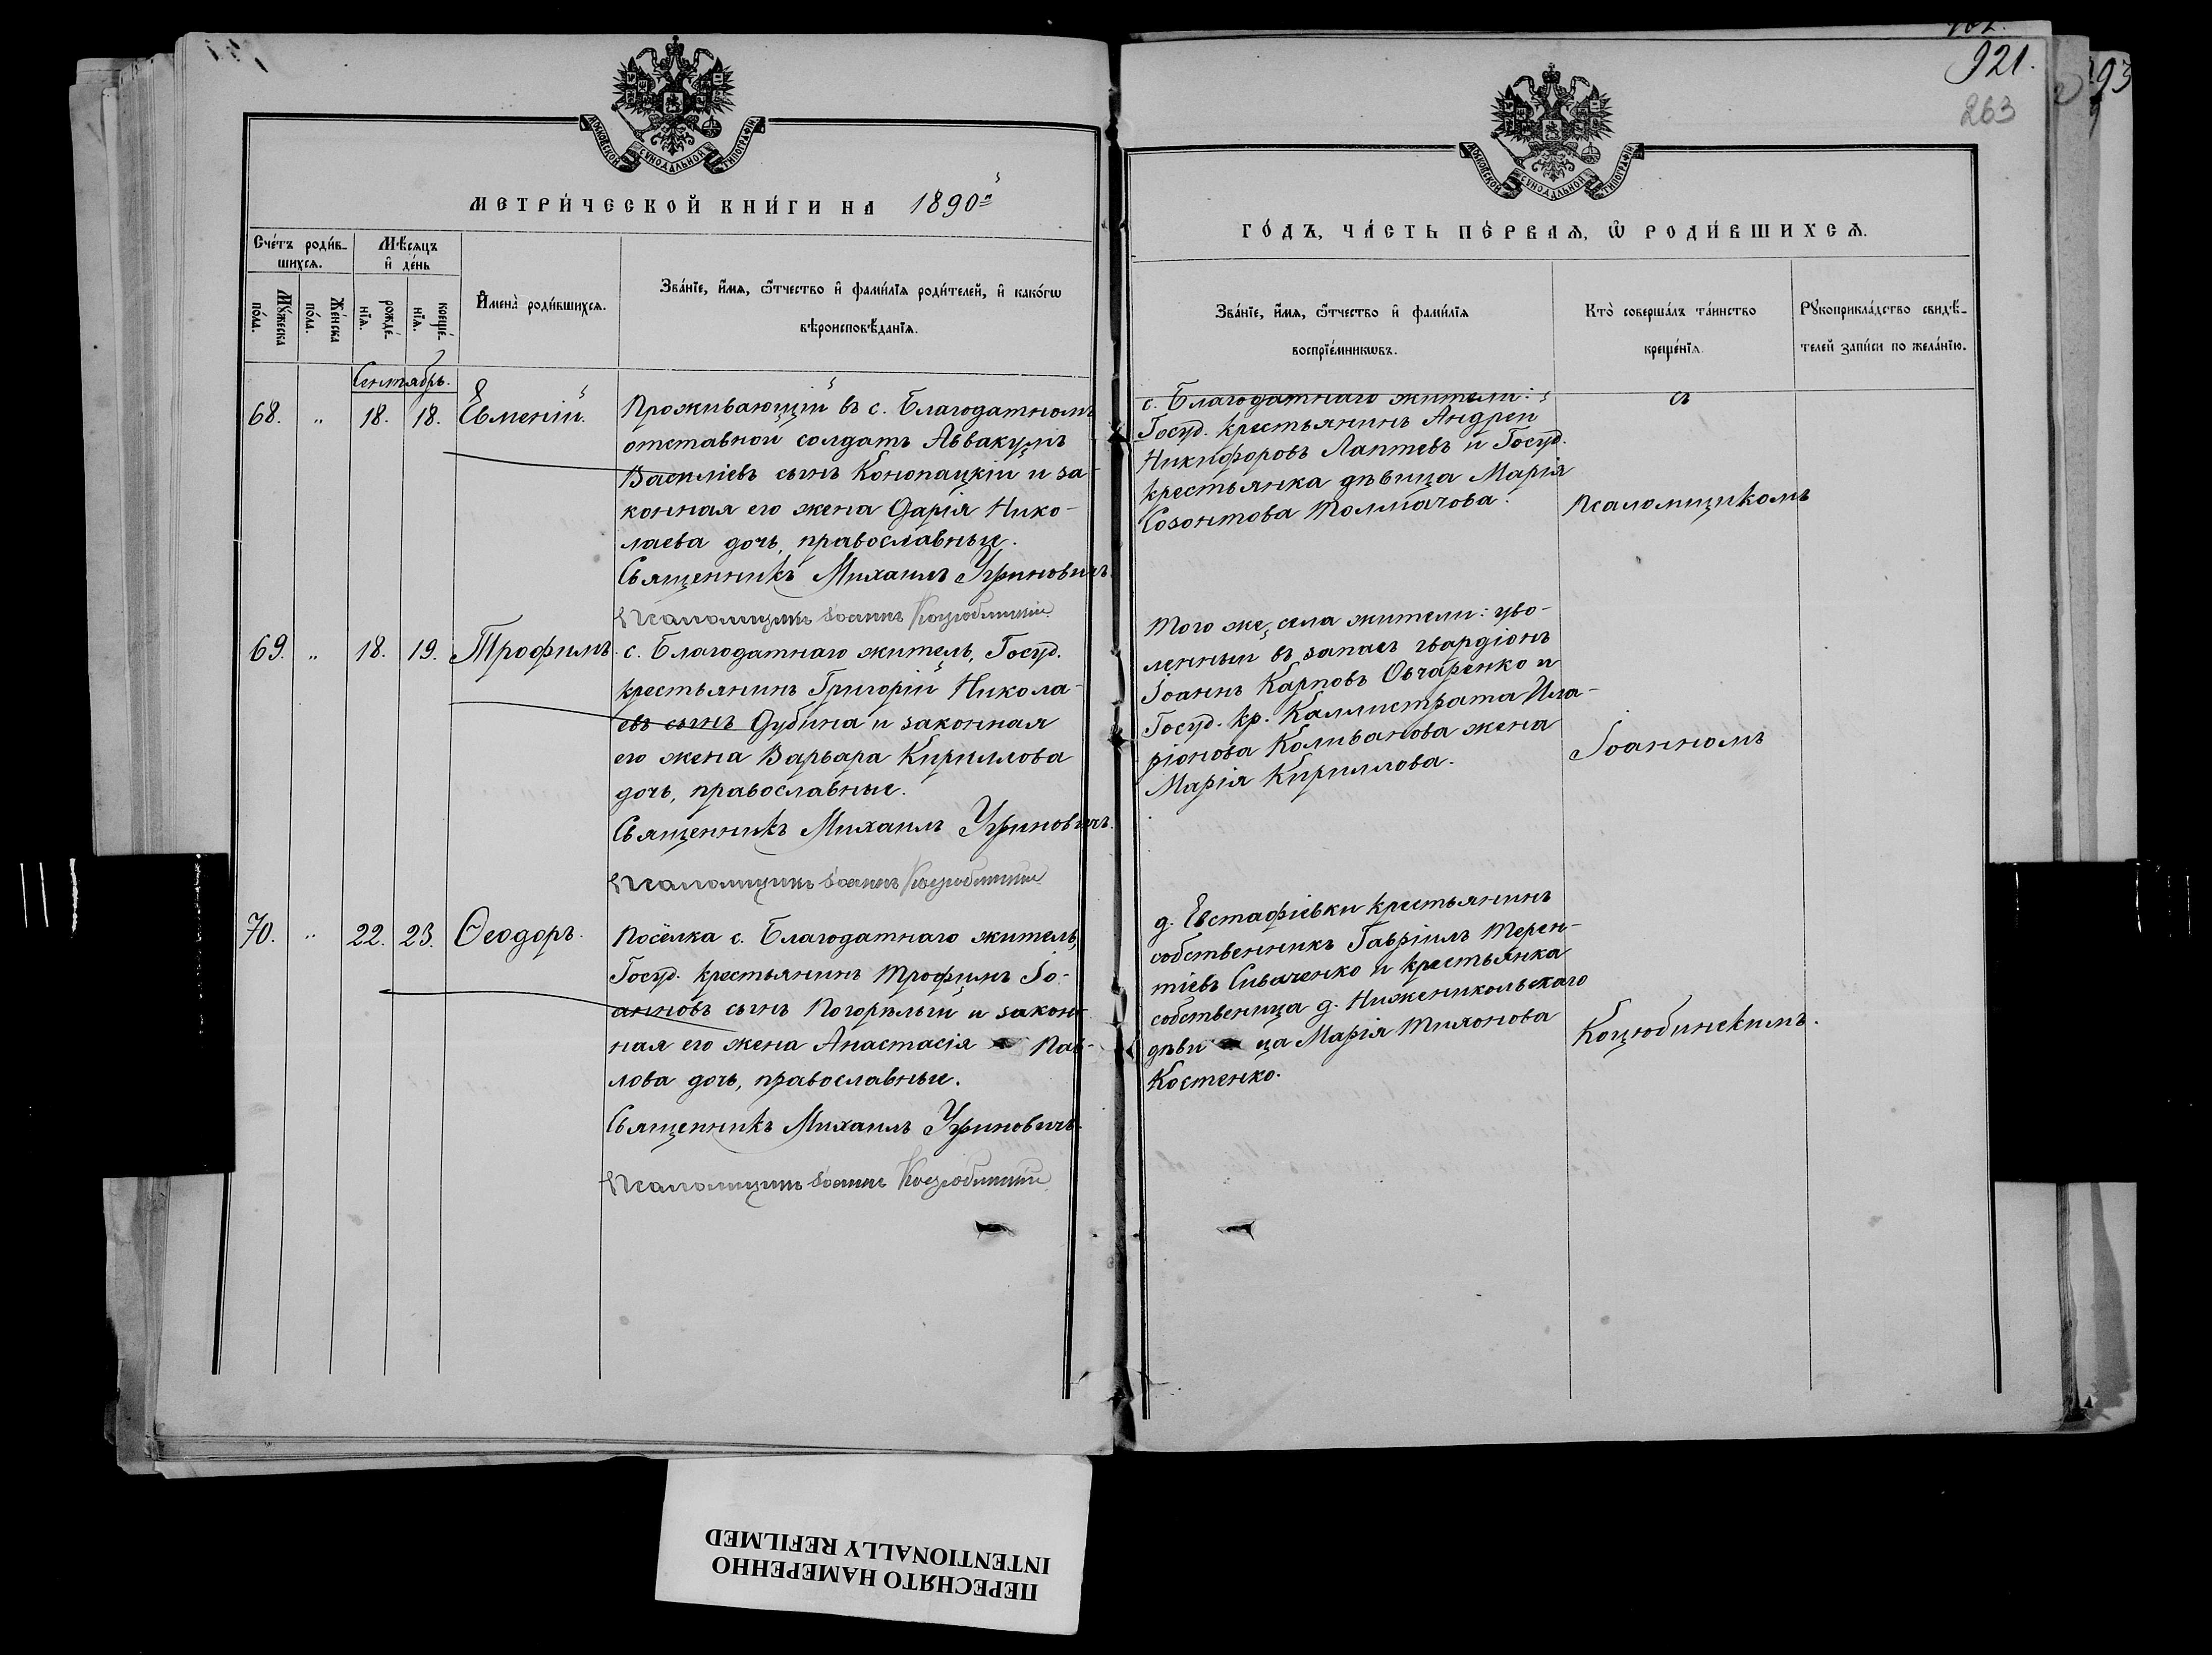 921.
263
293
МОСКОВСКОЙ СѴНОДАЛЬНОЙ ТИПОГРАФІИ
МЕТРИ́ЧЕСКОЙ КНИ́ГИ НА 1890й
Сче́тъ роди́в-
шихсѧ.
Мѣ́сѧцъ
и҆ де́нь
Мꙋ́жеска
по́ла.
Же́нска
по́ла.
рожде́-
нїѧ.
креще́-
нїѧ.
И҆мена̀ роди́вшихсѧ.
Зва́нїе, и҆́мѧ, ѻ҆́тчество и҆ фами́лїѧ роди́телей, и҆ како́гѡ
вѣроисповѣ́данїѧ.
Сентябрь.
68. " 18. 18. Евменій.
Проживающій въ с. Благодатномъ
отставной солдатъ Аввакумъ
Василіевъ сынъ Конопацкій и за-
конная его жена Дарія Нико-
лаева дочь, православные.
Священникъ Михаилъ Угриновичъ.
Псаломщикъ Іоаннъ Коцюбинскій
69. " 18. 19. Трофимъ.
с. Благодатнаго житель, Госуд.
крестьянинъ Григорій Никола-
евъ сынъ Дубина и законная
его жена Варвара Кириллова
дочь, православные.
Священникъ Михаилъ Угриновичъ.
Псаломщикъ Іоаннъ Коцюбинскій
70. " 22. 23. Ѳеодоръ.
Посёлка с. Благодатнаго житель,
Госуд. крестьянинъ Трофимъ Іо-
анновъ сынъ Погорѣлый и закон-
ная его жена Анастасія Пав-
лова дочь, православные.
Священникъ Михаилъ Угриновичъ.
Псаломщикъ Іоаннъ Коцюбинскій
МОСКОВСКОЙ СѴНОДАЛЬНОЙ ТИПОГРАФІИ
ГО́ДЪ, ЧА́СТЬ ПЕ́РВАѦ, Ѡ҆ РОДИ́ВШИХСѦ.
Зва́нїе, и҆́мѧ, ѻ҆́тчество и҆ фами́лїѧ
воспрїе́мникѡвъ.
Кто̀ соверша́лъ та́инство
креще́нїѧ.
Рꙋкоприкла́дство свидѣ́-
телей за́писи по жела́нїю.
с. Благодатнаго жители:
Госуд. крестьянинъ Андрей
Никифоровъ Лаптевъ и Госуд.
крестьянка дѣвица Марія
Созонтова Толмачова.
съ
Псаломщикомъ
Того же села жители: уво-
ленный въ запасъ гвардіонъ
Іоаннъ Карповъ Овчаренко и
Госуд. кр. Каллистрата Ила-
ріонова Коливанова жена
Марія Кириллова.
Іоанномъ
д. Евстафіевки крестьянинъ
собственникъ Гавріилъ Терен-
тіевъ Сиваченко и крестьянка
собственица д. Нижениколь­скаго
дѣви ца Марія Тихонова
Костенко.
Коцюбинскимъ.
ПЕРЕСНЯТО НАМЕРЕННО
INTENTIONALLY REFILMED